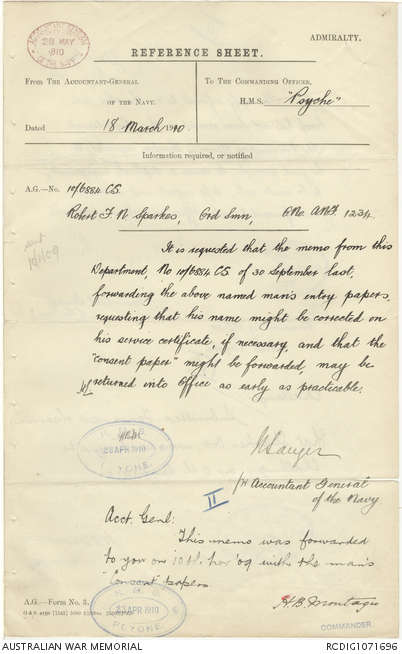 ADMIRALTY.
28 MAY
1910
REFERENCE SHEET.
From THE ACCOUNTANT-GENERAL
OF THE NAVY.
Dated 18 March 1910
TO THE COMMANDING OFFICER,
H.M.S. "Psyche"
Information required, or notified
A.G.—No. 10/6884 CS.
Robert F. N. Sparkes, Ord Smn, O No. ANF. 1234.
It is requested that the memo from this
Department, No 10/6884 CS of 30 September last,
forwarding the above named man's entry papers,
requesting that his name might be corrected on
his service certificate, if necessary, and that the
"consent paper" might be forwarded, may be
returned into Office as early as practicable.
23 APR 1910
Accountant General
of the Navy
II
Acct. Genl:
This memo was forwarded
to you on 10th Nov '09 with the man's
consent papers
23 APR 1910
H.B. Montagu
COMMANDER.
A.G.—Form No. 3.
AUSTRALIAN WAR MEMORIAL
RCDIG1071696